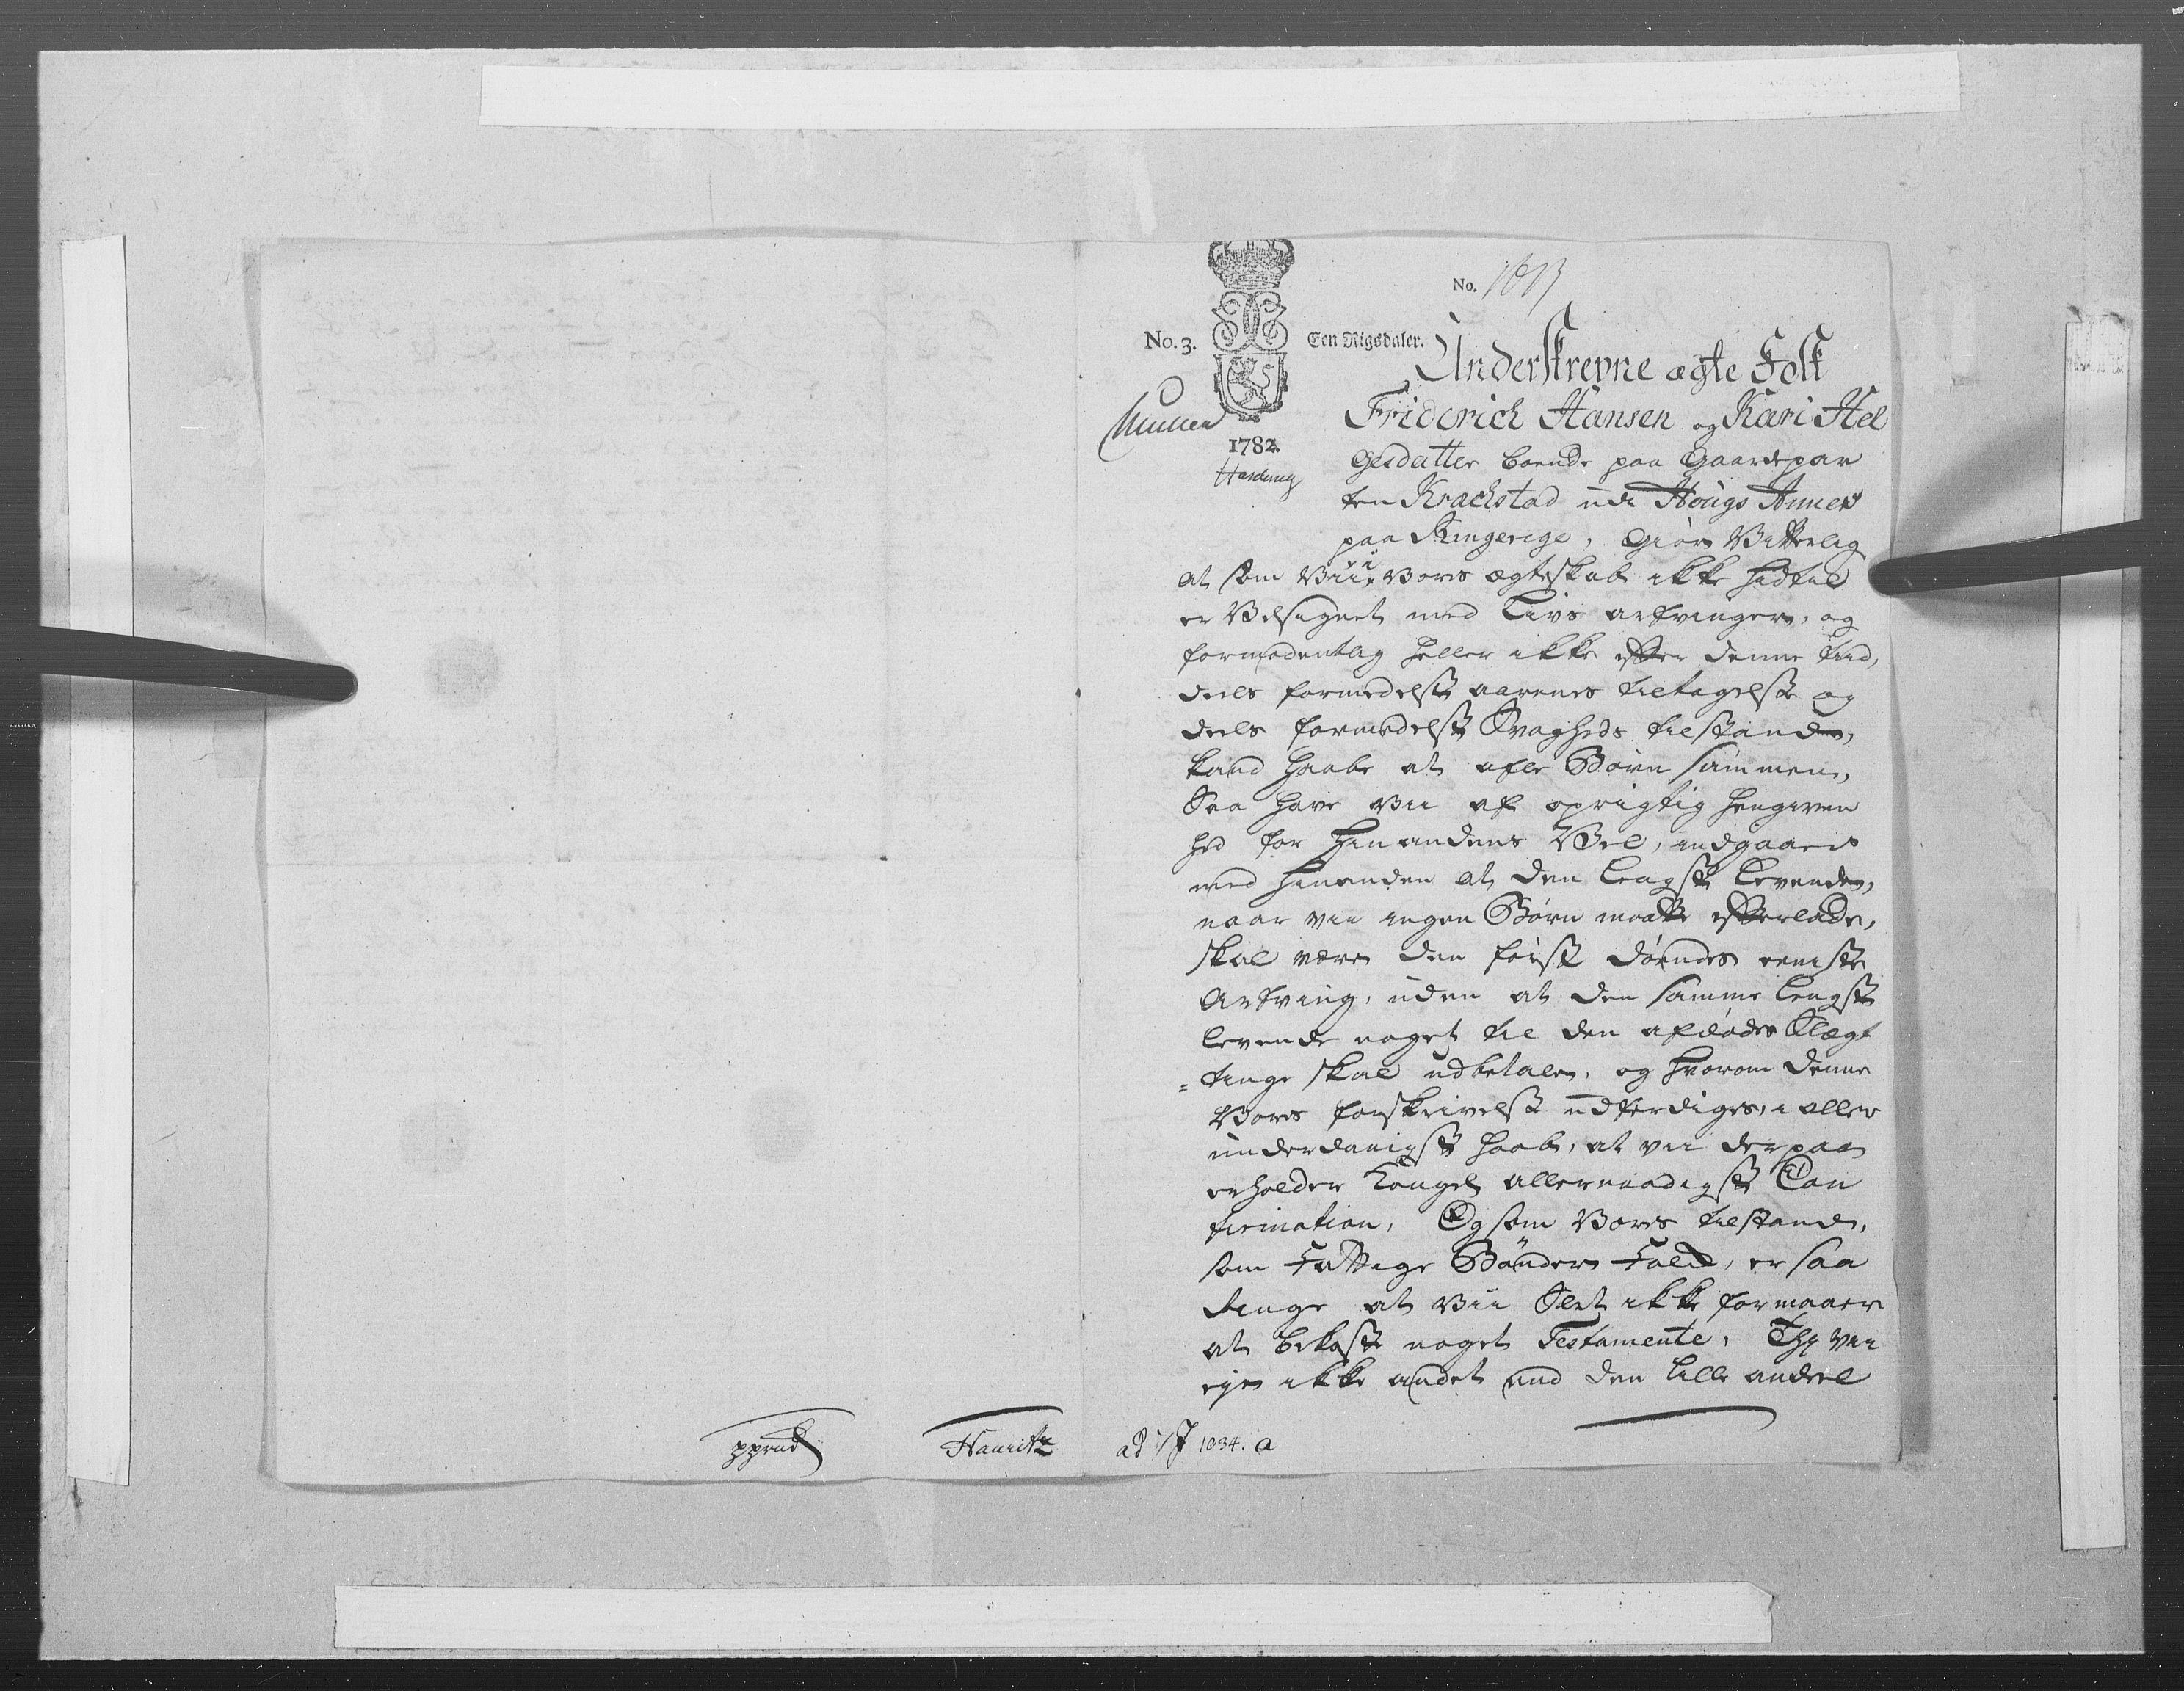 No. 1013
No. 3. Een Rigsdaler.
1782
Underskrevne ægte Folk
Friderich Hansen og Kari Hel
gesdatter boende paa Gaardepar
ten Krachstad udi Hougs Annex
paa Ringerige, Giør Vitterlig
at som Vii i Vores ægteskab ikke hidtil
er Velsignet med Livs arfvinger, og
formodentlig heller ikke efter denne tiid,
deels formedelst aarenes tiltagelse og
deels formedelst Svagheds tilstande,
kand haabe at afle Børn sammen,
Saa have vii af oprigtig hengiven
hed for hinandens Vel, indgaaed
med hinanden at den lengst levende,
naar vii ingen Børn maatte efterlade,
skal være den først døendes eeniste
Arfving, uden at den samme lengst
levende noget til den afdødes Slægt
tinge skal udbetale, og hvorom denne
Vores forskrivelse udferdiges, i aller
underdanigst haab, at vii derpaa
erholder Kongel. allernaadigst Con
firmation, Og som Vores tilstand,
som fattige Bønder folk, er saa
ringe at vii Slet ikke formaaer
at bekoste noget Testamente, Thi vii
eye ikke andet end den lille andeel
Hauritz
ad 1034. a